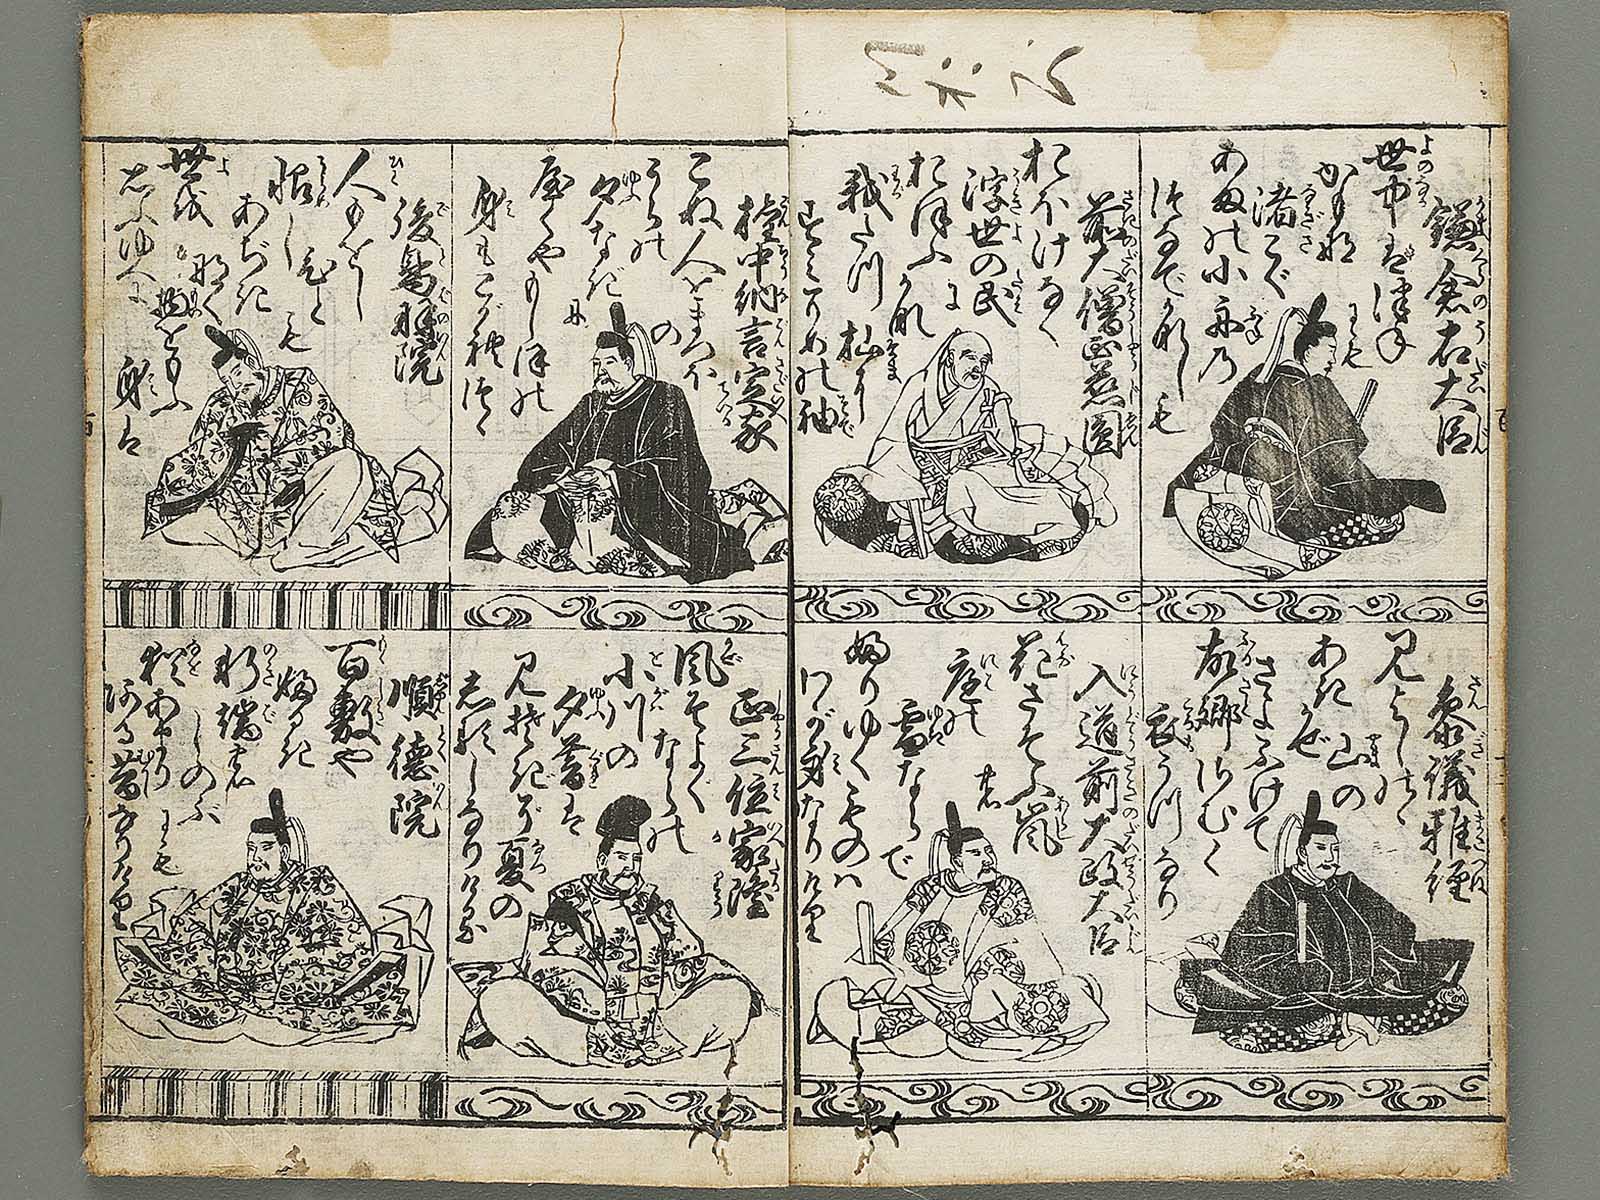 鎌倉右大臣
世中はつね
にも
かもな
渚こぐ
あまの小舟の
つなでかなしも
参議雅経
見よしのゝ
山の
あきかぜ
さよふけて
故郷さむく
衣うつなり
前大僧正慈圓
おほけなく
浮世の民に
おほふかな
我たつ杣に
すみぞめの袖
入道前太政大臣
花さそふ嵐の
庭の
雪ならで
ふりゆくものハ
わが身なりけり
権中納言定家
こぬ人をまつほの
うらの
夕なぎに
屋くやもしほの
身もこがれつゝ
正三位家隆
風そよぐ
ならの
小川の
夕暮は
見そぎぞ夏の
しるしなりける
後鳥羽院
人もをし
人も
恨し
あぢきなく
世を
おもふゆへに
物をもふ
身は
順徳院
百敷や
ふるき
軒端の
しのぶにも
猶あまり
ある昔なりけり